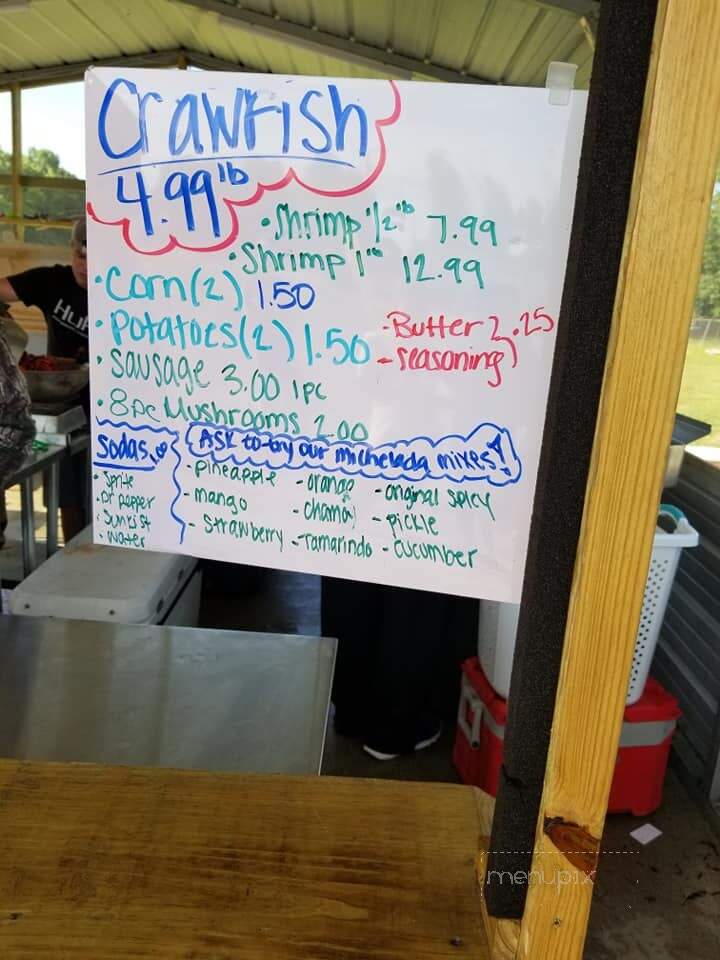 Crawfish
4.99 lb
• Shrimp 1/2 lb 7.99
• Shrimp 1 lb 12.99
• Corn (2) 1.50
• Potatoes (2) 1.50
- Butter 2.25
- seasoning
• Sausage 3.00 1pc
• 8pc Mushrooms 2.00
Sodas
• Sprite
• Dr pepper
• Sunkist
• Water
Ask to try our michelada mixes!
- Pineapple
- mango
- Strawberry
- orange
- chamoy
- Tamarindo
- original spicy
- pickle
- cucumber
menupix